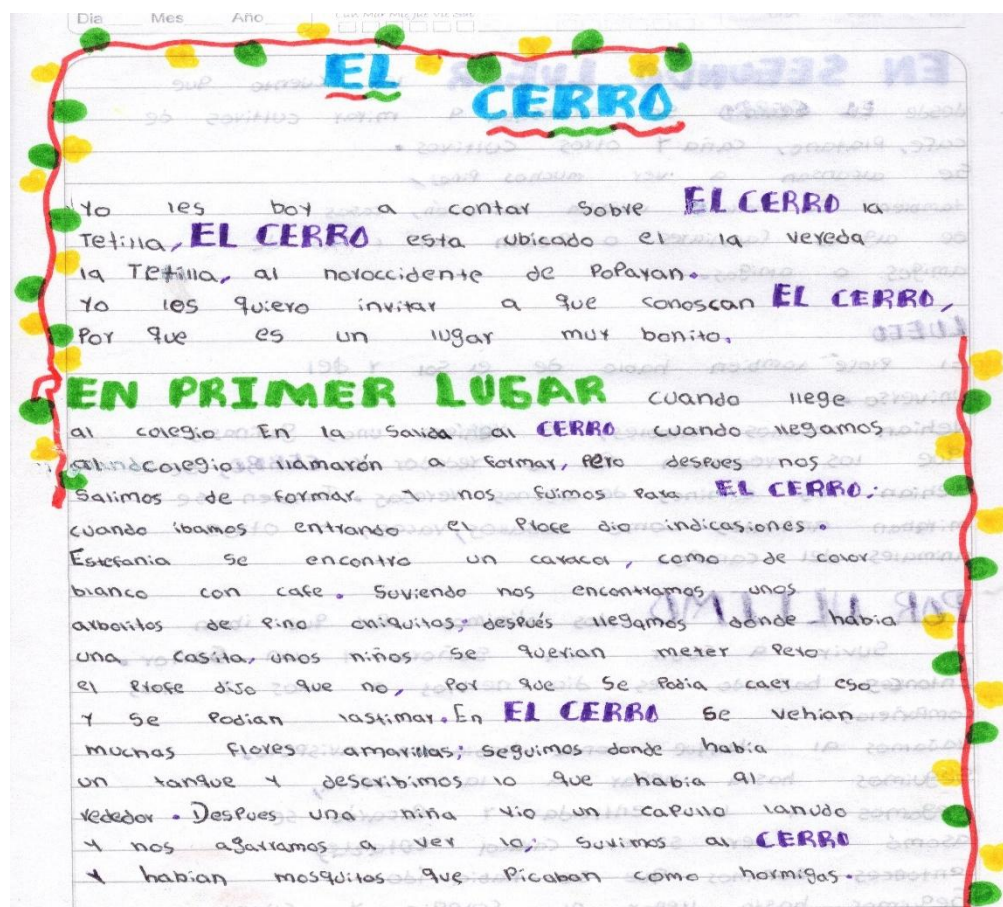 Dia Mes Año
EL
CERRO
Yo les boy a contar sobre EL CERRO la
Tetilla, EL CERRO esta ubicado en la vereda
la Tetilla, al noroccidente de Popayan.
Yo les quiero invitar a que conoscan EL CERRO,
Por que es un lugar muy bonito.
EN PRIMER LUGAR cuando llege
al colegio En la Salida al CERRO cuando llegamos
al colegio llamarón a formar, pero despues nos
Salimos de formar y nos fuimos Para EL CERRO;
cuando ibamos entrando el Profe dio indicasiones.
Estefania se encontro un caracol, como de color
blanco con cafe. Suviendo nos encontramos unos
arbolitos de Pino chiquitos; después llegamos donde había
una casita, unos niños se querian meter Pero
el Profe dijo que no, Por que Se Podia caer eso
y Se Podian lastimar. En EL CERRO se vehian
muchas Flores amarillas; seguimos donde había
un tanque y describimos lo que habia al
rededor. Despues una niña vio un capullo lanudo
y nos agarramos a ver lo; Suvimos al CERRO
y habian mosquitos que Picaban como hormigas.